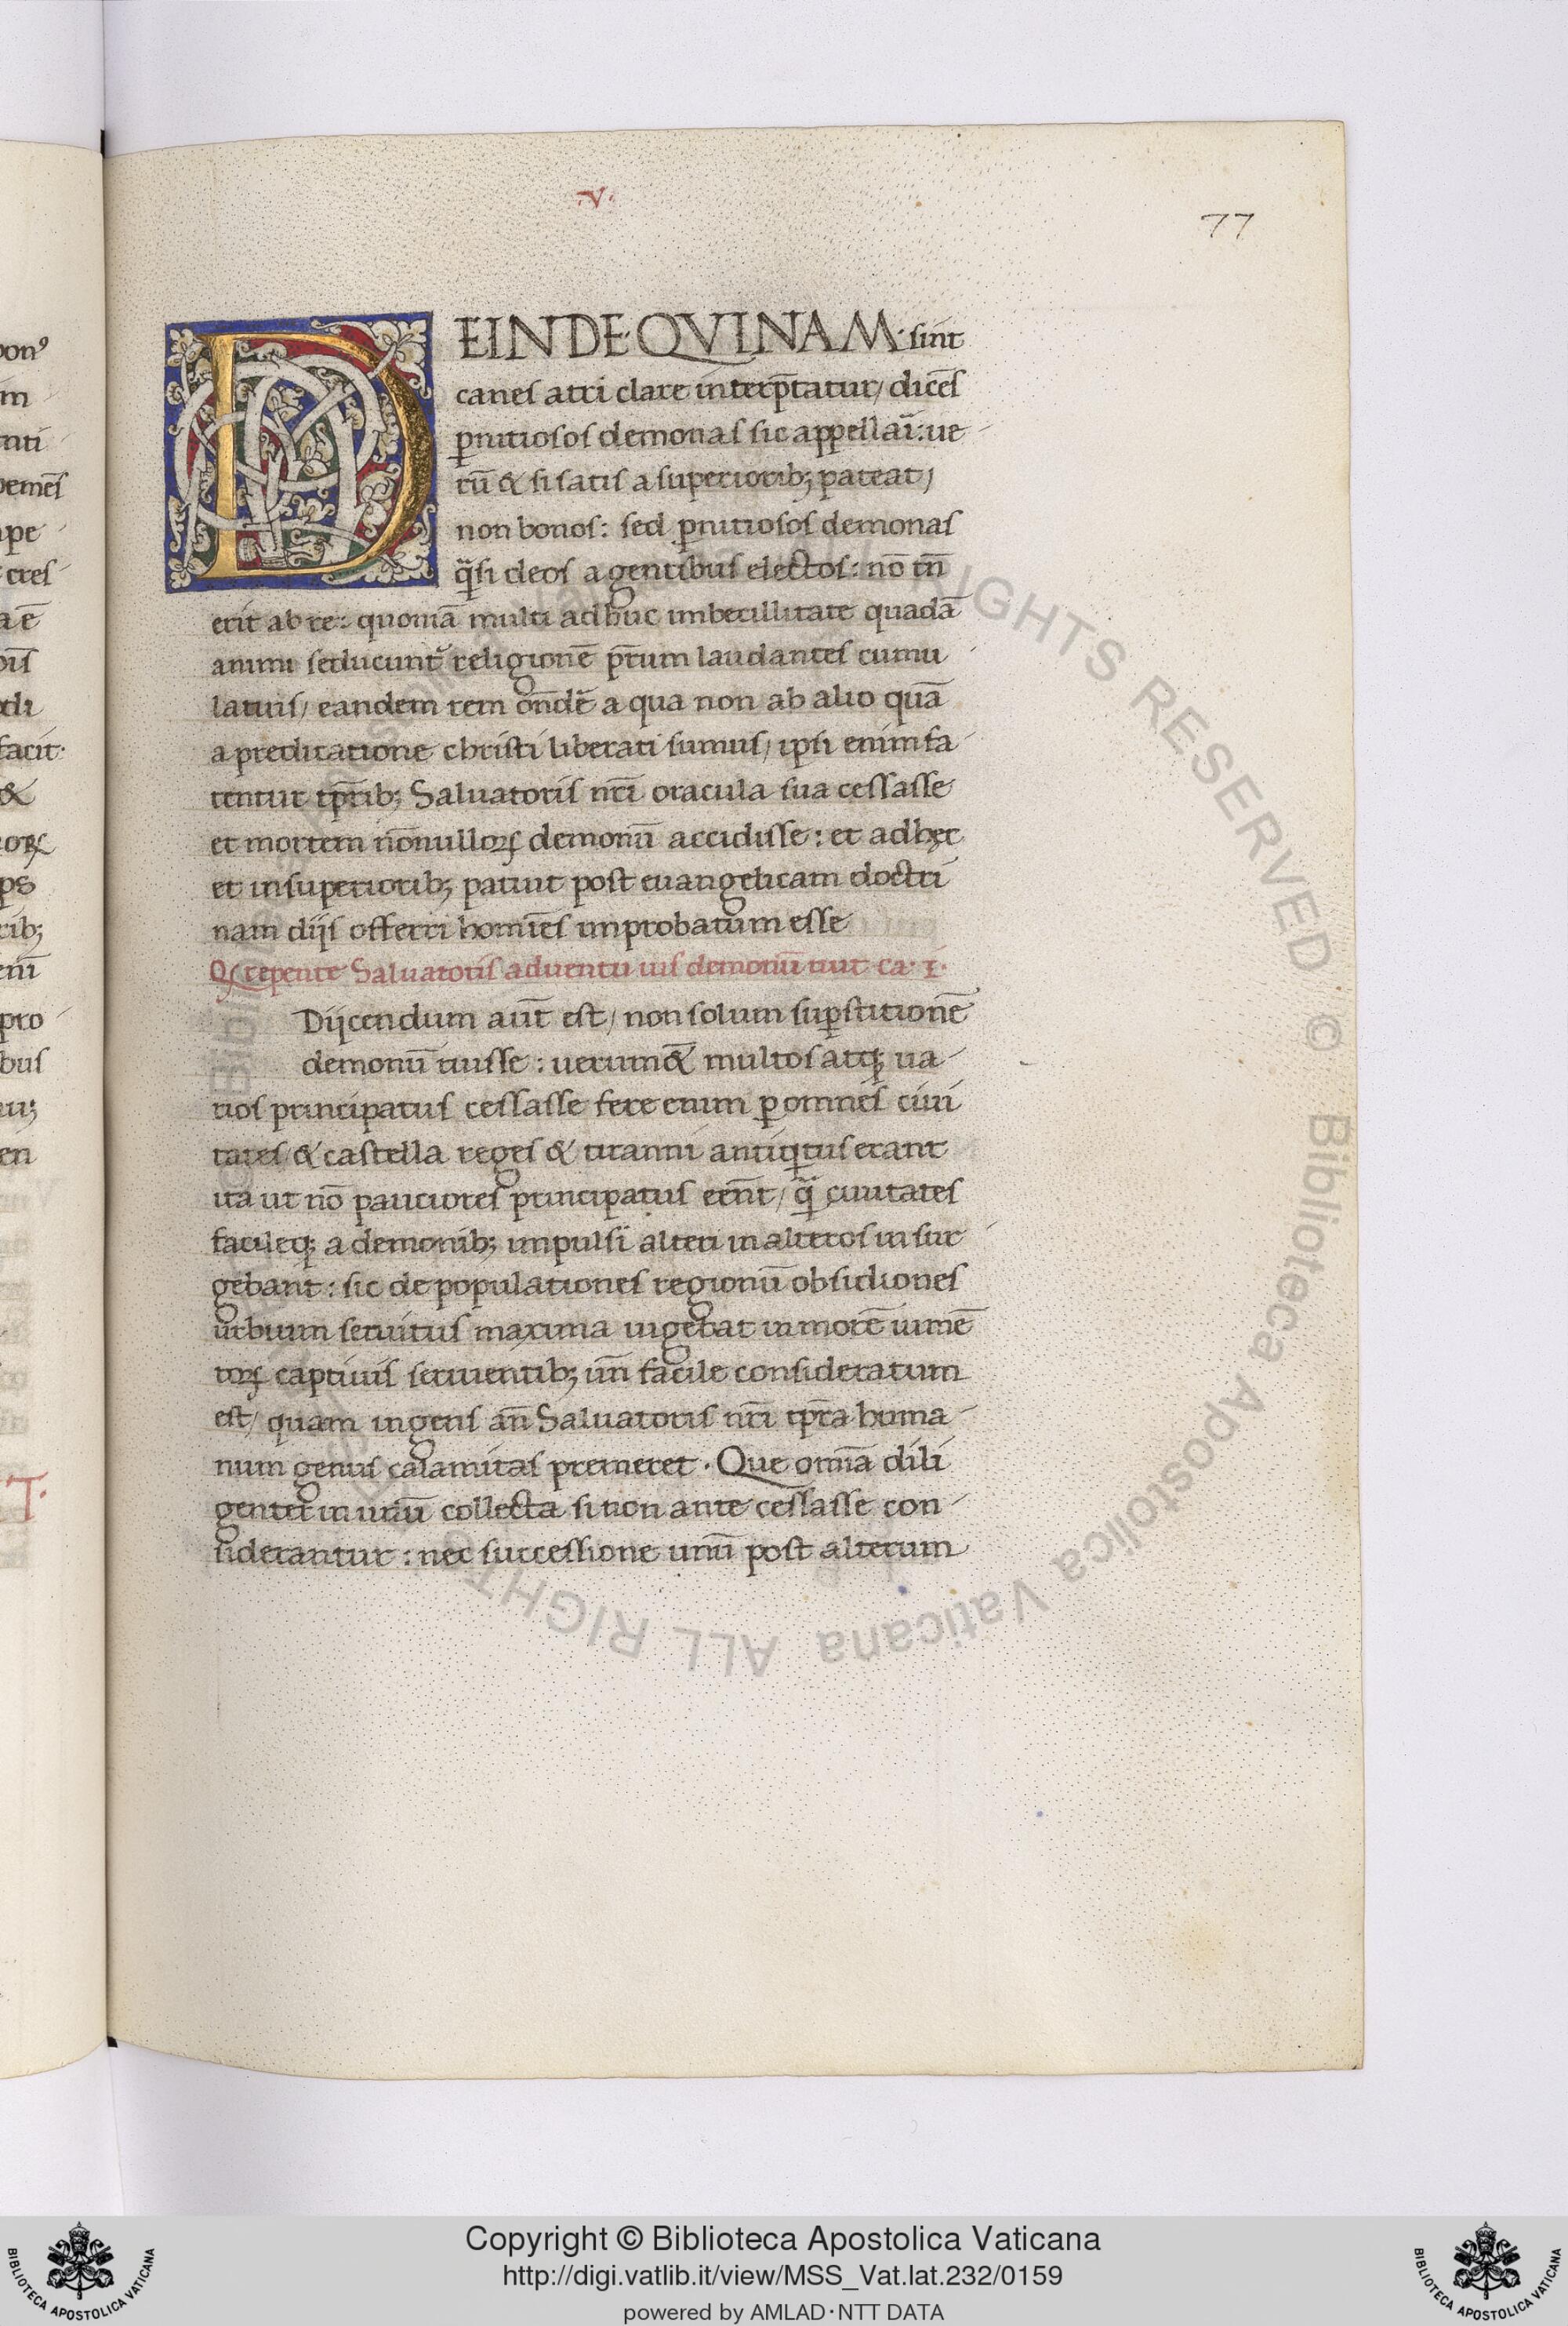 .v.
77
DEINDE·QVINAM·sint
canes atri clare interp̄tatur, dicēs
ꝑnitiosos demonas sic appellaı̄: ue
rū & si satis a superiorib; pateat,
non bonos: sed ꝑnitiosos demonas
q̈si deos a gentibus electos: nō tn̄
erit ab re: quoniā multi adhuc imbecillitate quadā
animi seducunt᷑ religionē pr̄um laudantes cumu
latius, eandem rem on̄dē a qua non ab alio quā
a predicatione christi liberati sumus, ipsi enim fa
tentur tp̄rib; Saluatoris nr̄i oracula sua cessasse
et mortem nōnulloꝝ demonū accidisse: et ad hęc
et in superiorib; patuit post euangelicam doctri
nam dijs offerri homīes improbatum esse
Qꝫ repente Saluatoris aduentu uis demonū ruit ca· I·
Dijcendum aūt est, non solum suꝑstitionē
demonū ruisse: uerum & multos atqꝫ ua
rios principatus cessasse fere enim ꝑ omnes ciui
tates & castella reges & tiranni antiqitus erant
ita ut nō pauciores principatus eēnt, q̄ ciuitates
facileqꝫ a demonib; impulsi alteri in alteros insur
gebant: sic de populationes regionū obsidiones
urbium seruitus maxima uigebat in morē iumē
toꝝ captiuis seruientib; un̄ facile consideratum
est, quam ingens an̄ Saluatoris nr̄i tp̄ra huma
num genus calamitas premeret. Que omīa dili
genter in unū collecta si non ante cessasse con
siderantur: nec successione unū post alterum
pon⁹
im
nti
pemēs
ipe
cres
a ē
facit·
&
oꝝ
rib;
pro
bus
en
T.
© Biblioteca Apostolica Vaticana ALL RIGHTS RESERVED
Copyright © Biblioteca Apostolica Vaticana
http://digi.vatlib.it/view/MSS_Vat.lat.232/0159
powered by AMLAD·NTT DATA
BIBLIOTECA APOSTOLICA VATICANA
BIBLIOTECA APOSTOLICA VATICANA